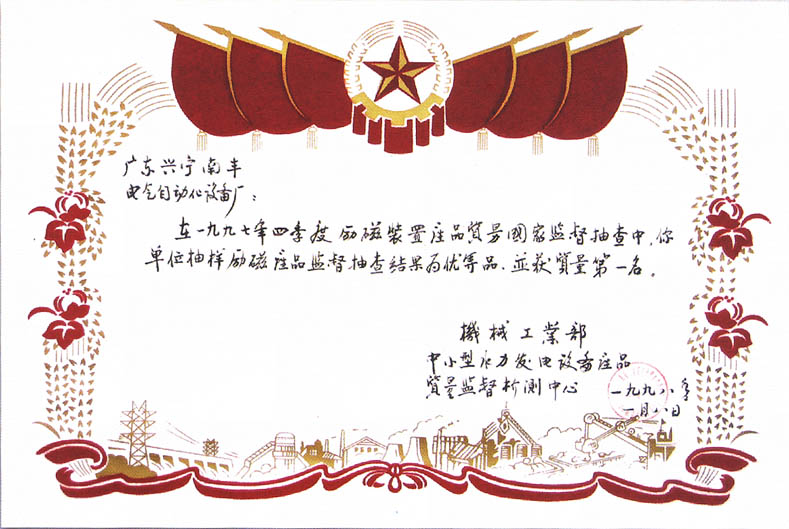 广东兴宁南丰
电气自动化设备厂：
在一九九七年四季度励磁装置产品质量国家监督抽查中，你
单位抽样励磁产品监督抽查结果为优等品，並获質量第一名。
機械工業部
中小型水力发电设备产品
質量监督检测中心
一九九八年
一月八日